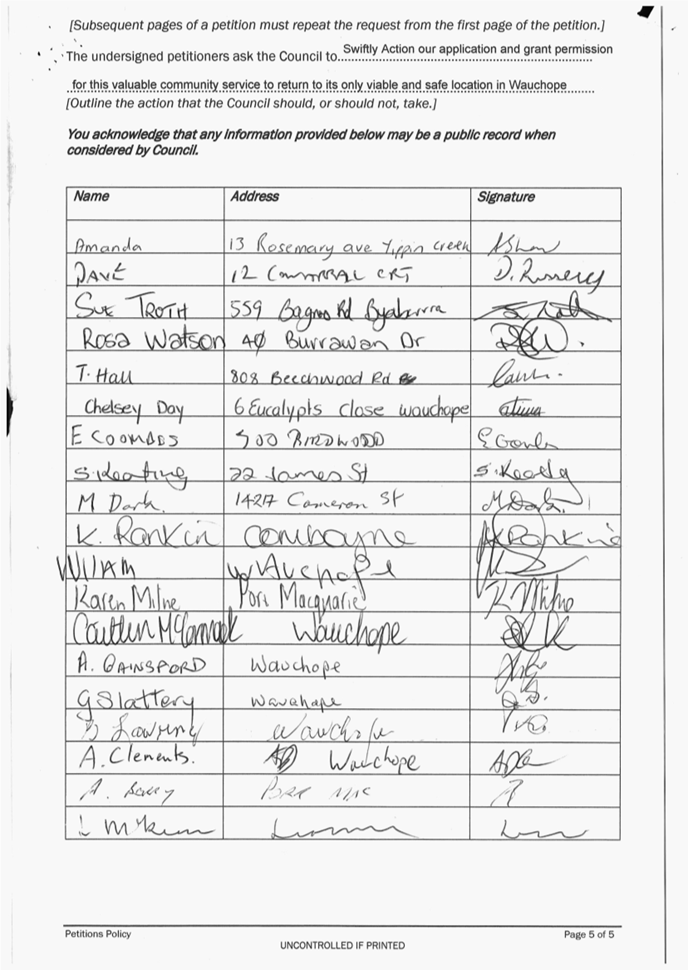 [Subsequent pages of a petition must repeat the request from the first page of the petition.]
The undersigned petitioners ask the Council to.....Swiftly Action our application and grant permission
for this valuable community service to return to its only viable and safe location in Wauchope......
[Outline the action that the Council should, or should not, take.]
You acknowledge that any information provided below may be a public record when
considered by Council.
Name Address Signature
Amanda 13 Rosemary ave Yippin Creek AShaw
DAVE 12 CRT
SUE TROTH 559 Bagnoo Rd Byabarra
Rosa Watson 40 Burrawan Dr
T. Hall 808 Beechwood Rd
Chelsey Day 6 Eucalypts Close wauchope
E COOMBES 500 E Coombes
S. Keating 22 James St S. Keating
M Dark. 142 Cameron St M Dark
K. Rankin Comboyne K Rankin
Wauchope
Karen Milne Port Macquarie K Milne
Caitlin Wauchope
A. GAINSFORD Wauchope
G Slattery Wauchope G.S.
Wauchope
A. Clements. Wauchope
A.
L
Petitions Policy Page 5 of 5
UNCONTROLLED IF PRINTED